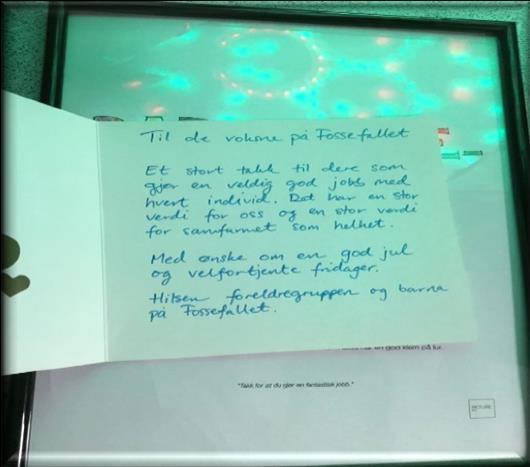 Til de voksne på Fossefallet
Et stort takk til dere som
gjør en veldig god jobb med
hvert individ. Det har en stor
verdi for oss og en stor verdi
for samfunnet som helhet.
Med ønske om en god jul
og velfortjente fridager.
Hilsen foreldregruppen og barna
på Fossefallet.
en god klem på lur.
"Takk for at du gjør en fantastisk jobb."